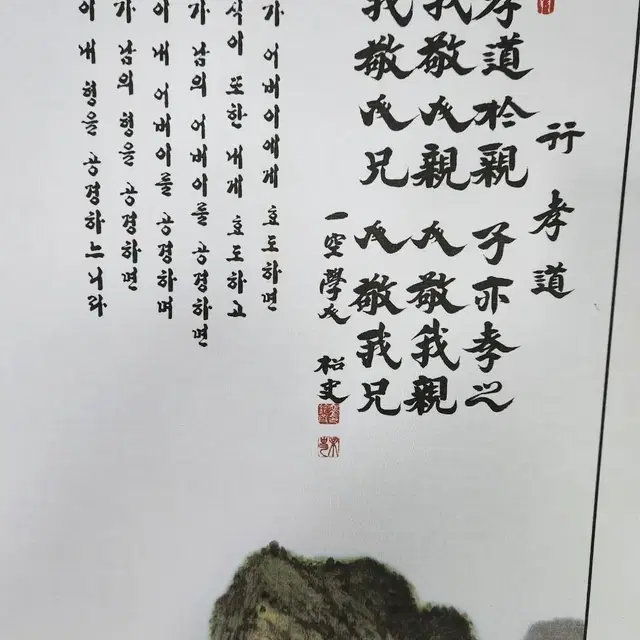 行 孝 道
孝道於親 子亦孝之
我敬人親 人敬我親
我敬人兄 人敬我兄
一空學人 松
가 어버이에게 효도하면
식이 또한 내게 효도하고
가 남의 어버이를 공경하면
이 내 어버이를 공경하며
가 남의 형을 공경하면
이 내 형을 공경하느니라